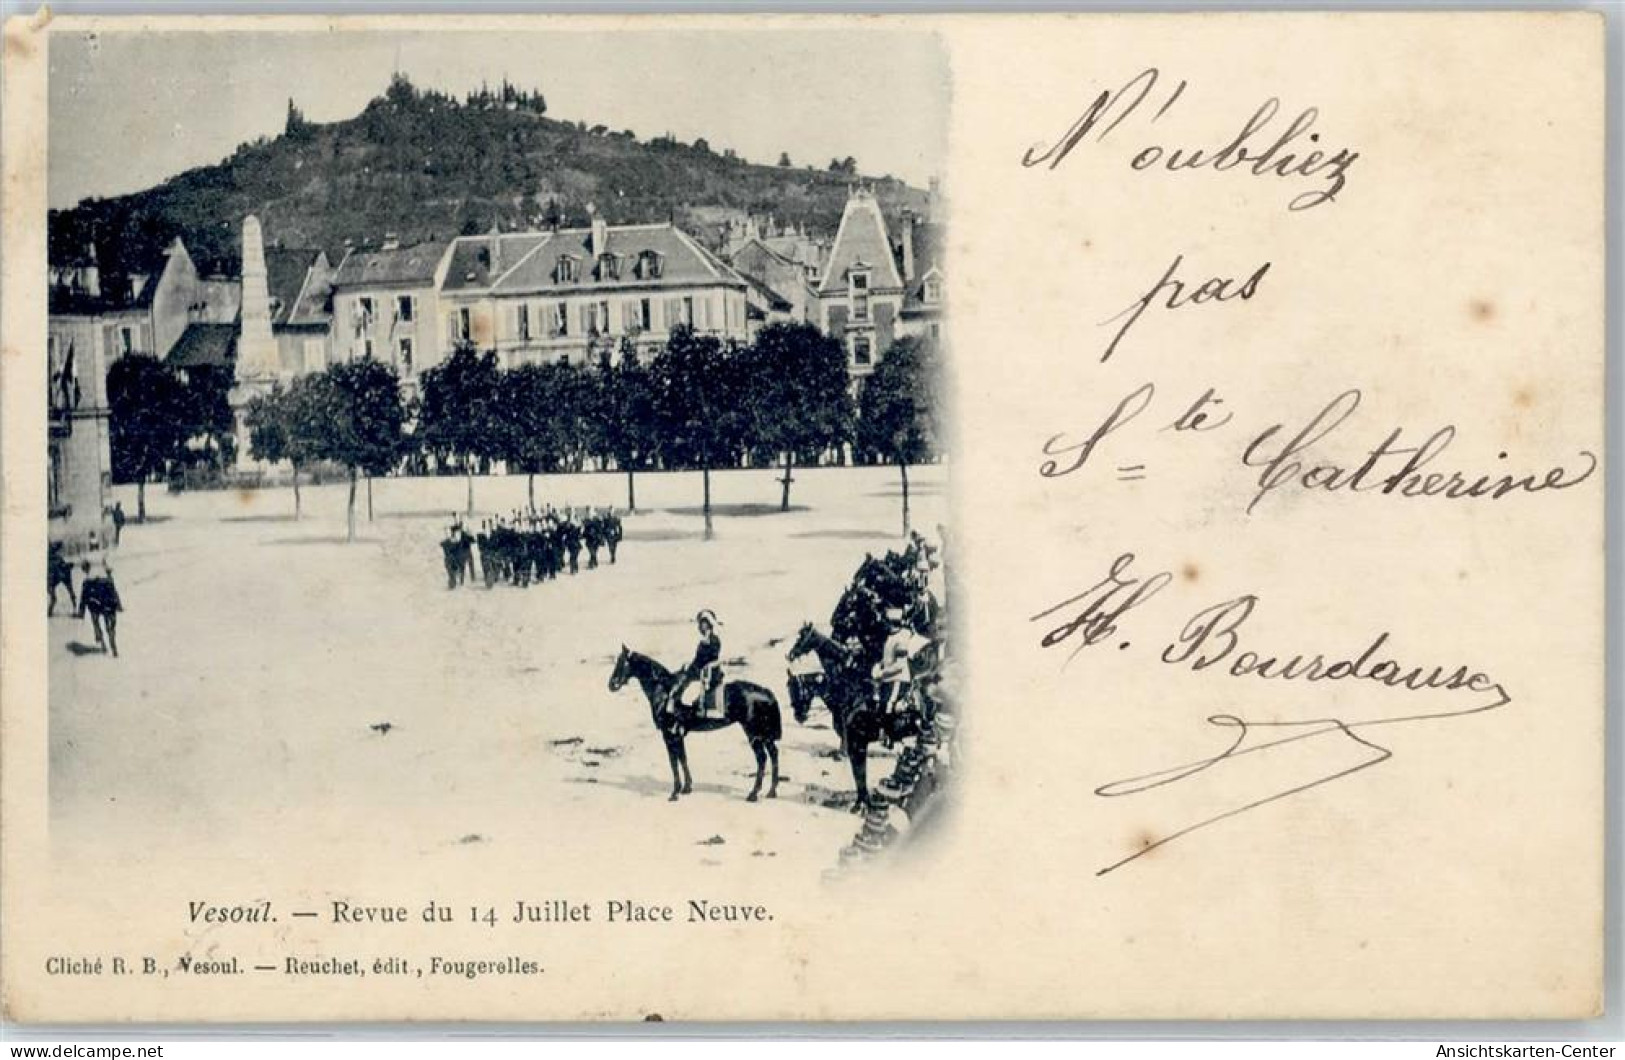 N'oubliez
pas
Ste Catherine
H. Bourdause
Vesoul. — Revue du 14 Juillet Place Neuve.
Cliché R. B., Vesoul. — Reuchet, édit., Fougerolles.
oldthing.de/ansichtskarten-center
Ansichtskarten-Center